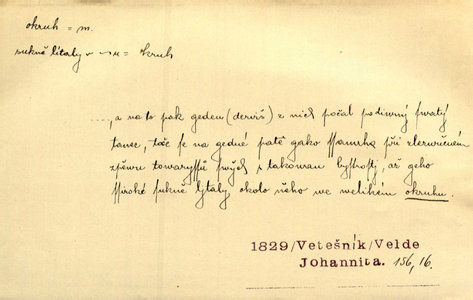 okruh = m.
sukně lítaly v -u = kruh
....., a na to pak geden (derviš) z nich počal podiwný swatý
tanec, toče se na gedné patě gako ssamrha při
zpěwu towaryssů swých s takowau bystrostj, až geho
ssiroké sukně lytaly okolo něho we welikém okruhu.
1829/Vetešník/Velde
Johannita. 156, 16.